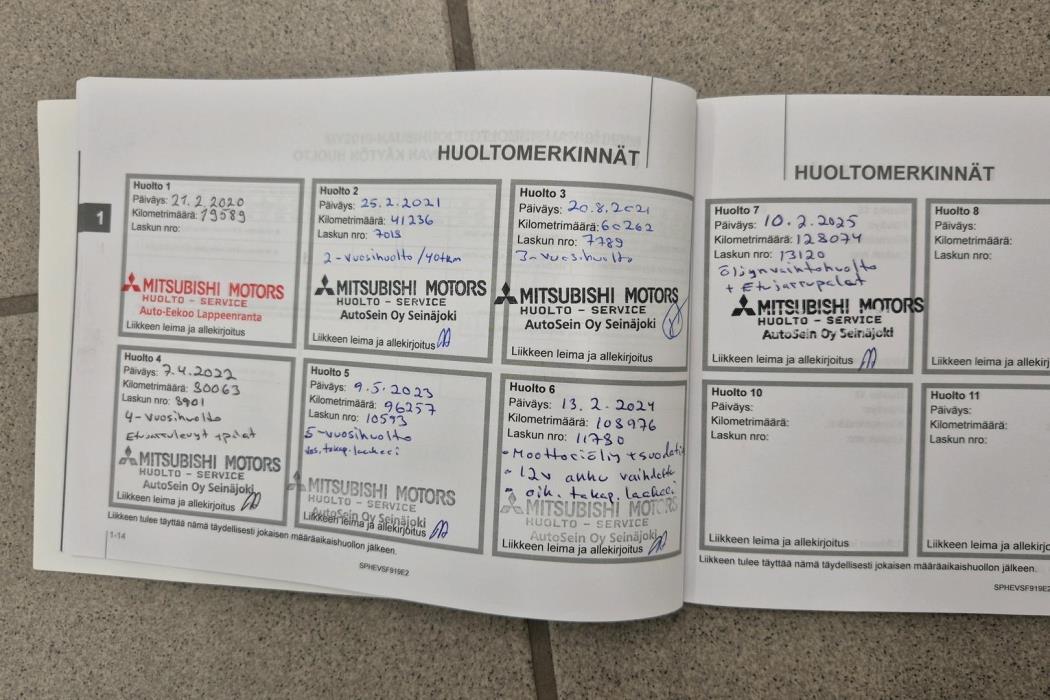 HUOLTOMERKINNÄT
1
Huolto 1
Päiväys: 21.2.2020
Kilometrimäärä: 19589
Laskun nro:
MITSUBISHI MOTORS
HUOLTO - SERVICE
Auto-Eekoo Lappeenranta
Liikkeen leima ja allekirjoitus
Huolto 2
Päiväys: 25.2.2021
Kilometrimäärä: 41236
Laskun nro: 7015
2-vuosihuolto/40tkm
MITSUBISHI MOTORS
HUOLTO - SERVICE
AutoSein Oy Seinäjoki
Liikkeen leima ja allekirjoitus
Huolto 3
Päiväys: 20.8.2021
Kilometrimäärä: 60262
Laskun nro: 7789
3-vuosihuolto
MITSUBISHI MOTORS
HUOLTO - SERVICE
AutoSein Oy Seinäjoki
Liikkeen leima ja allekirjoitus
Huolto 4
Päiväys: 7.4.2022
Kilometrimäärä: 80063
Laskun nro: 8901
4-vuosihuolto
Etujarrulevyt + palat
MITSUBISHI MOTORS
HUOLTO - SERVICE
AutoSein Oy Seinäjoki
Liikkeen leima ja allekirjoitus
Huolto 5
Päiväys: 9.5.2023
Kilometrimäärä: 96257
Laskun nro: 10593
5-vuosihuolto
vas. takap. laakeri
MITSUBISHI MOTORS
HUOLTO - SERVICE
AutoSein Oy Seinäjoki
Liikkeen leima ja allekirjoitus
Huolto 6
Päiväys: 13.2.2024
Kilometrimäärä: 108976
Laskun nro: 11780
- Moottoriöljy + suodatin
- 12v akku vaihdettu
- oik. takap. laakeri
MITSUBISHI MOTORS
HUOLTO - SERVICE
AutoSein Oy Seinäjoki
Liikkeen leima ja allekirjoitus
Liikkeen tulee täyttää nämä täydellisesti jokaisen määräaikaishuollon jälkeen.
1-14
SPHEVSF919E2
HUOLTOMERKINNÄT
Huolto 7
Päiväys: 10.2.2025
Kilometrimäärä: 128074
Laskun nro: 13120
öljynvaihtohuolto
+ Etujarrupalat
MITSUBISHI MOTORS
HUOLTO - SERVICE
AutoSein Oy Seinäjoki
Liikkeen leima ja allekirjoitus
Huolto 8
Päiväys:
Kilometrimäärä:
Laskun nro:
Liikkeen leima ja allekirj
Huolto 10
Päiväys:
Kilometrimäärä:
Laskun nro:
Liikkeen leima ja allekirjoitus
Huolto 11
Päiväys:
Kilometrimäärä:
Laskun nro:
Liikkeen leima ja allekirjo
Liikkeen tulee täyttää nämä täydellisesti jokaisen määräaikaishuollon jälkeen.
SPHEVSF919E2